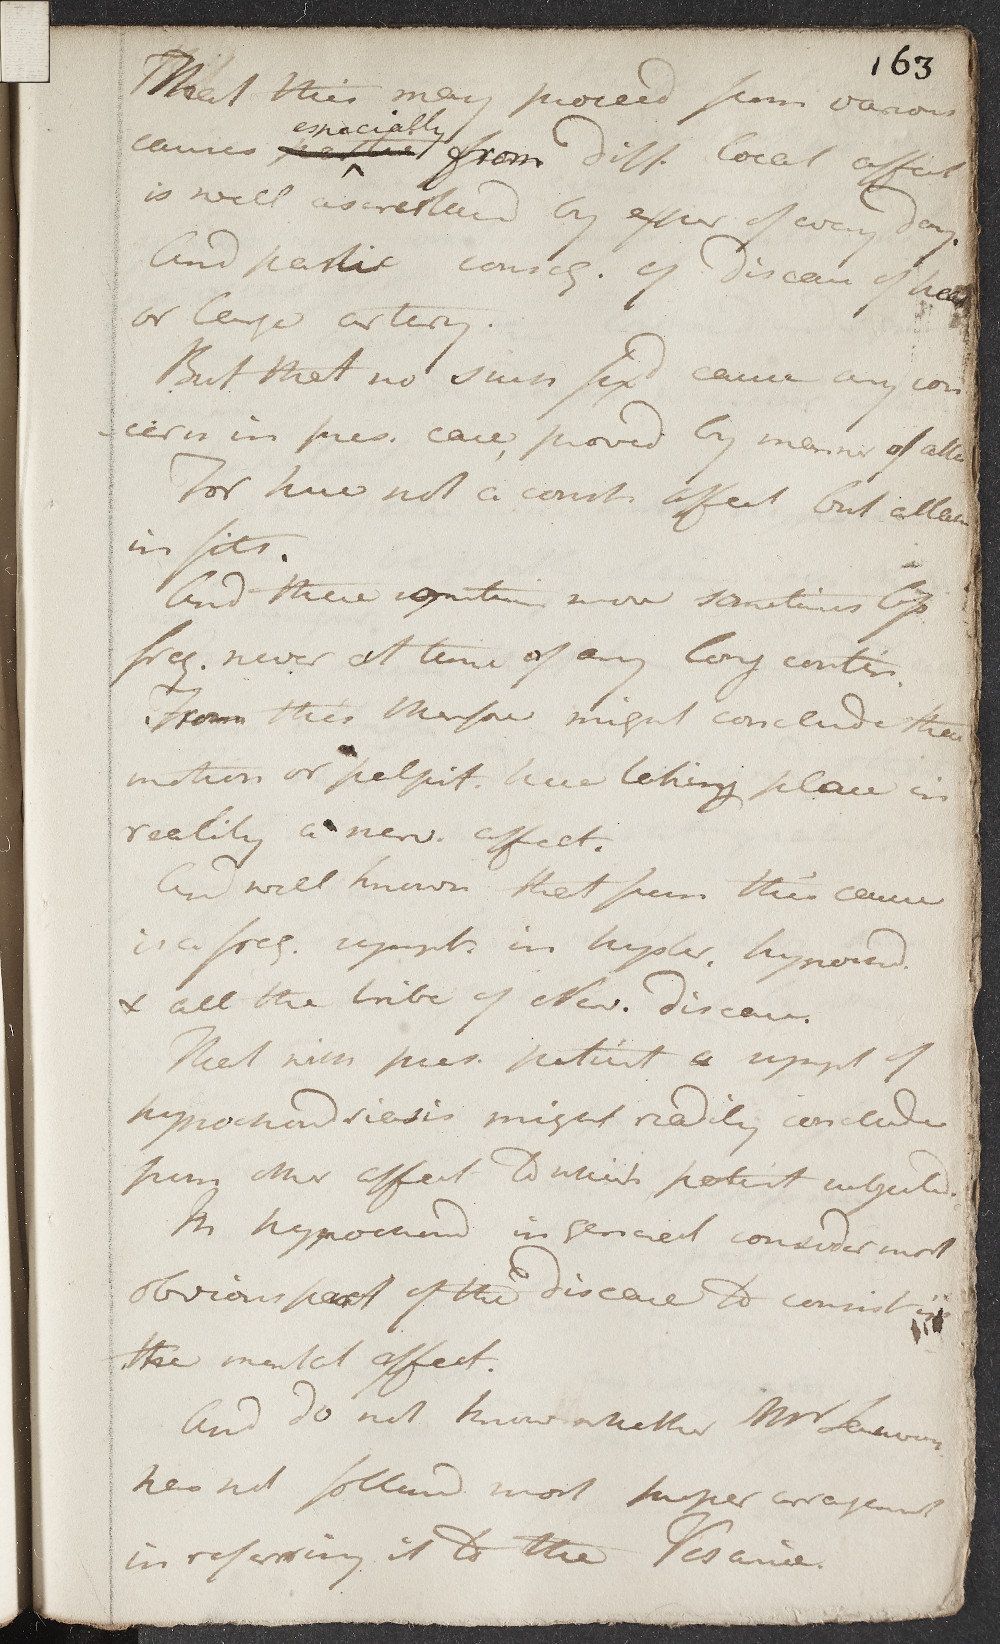 163
That this may proceed from various
especially
causes partic from diff. local affect
is well ascertained by exper of every day.
And partic conseq. of disease of heart
or large artery.
But that no such fixd cause any con
-cern in pres. case, proved by manner of attac
For here not a const. affect but attacks
in fits.
And these sometimes more sometimes less
freq. never at time of any long contin.
From this therefore might conclude that
motion or palpit. here taking place in
reality a nerv. affect.
And well known that from this cause
is a freq. sympt. in hyster. hypocond.
& all the tribe of Nerv. disease.
That with pres. patient a sympt of
hypochondriasis might readily conclude
from other affect to which patient subjected.
In hypochond in general consider most
obvious part of the disease to consist in
the mental affect.
And do not know whether Mr
has not followd most proper arragement
in referring it to the Vesaniæ.